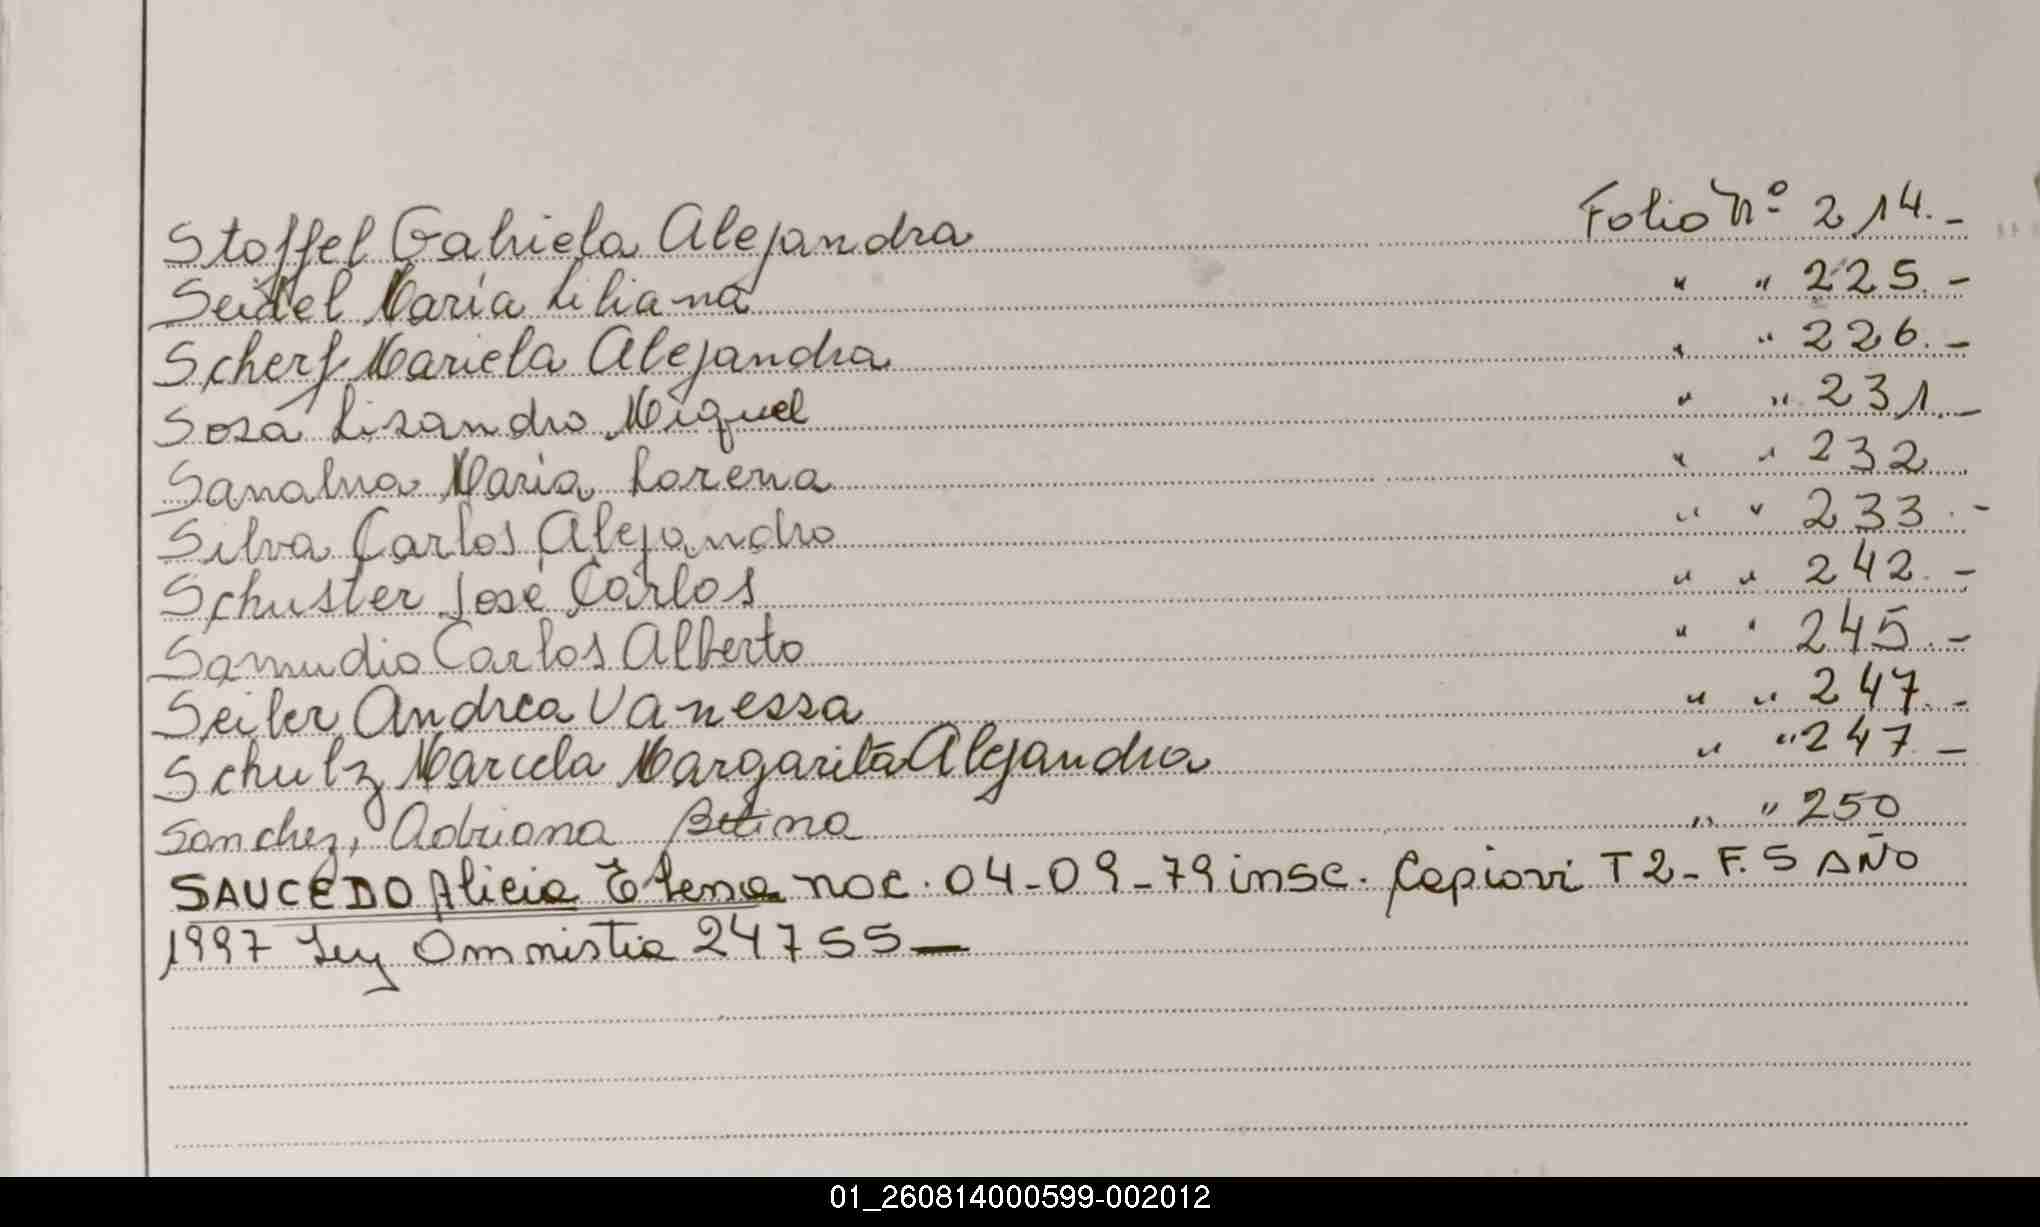 Stoffel Gabriela Alejandra Folio Nº 214.-
Seidel Maria Liliana " " 225.-
Scherf Mariela Alejandra " " 226.-
Sosa Lisandro Miguel " " 231.-
Sanabria Maria Lorena " " 232
Silva Carlos Alejandro " " 233.-
Schuster José Carlos " " 242.-
Samudio Carlos Alberto " " 245.-
Seiler Andrea Vanessa " " 247.-
Schulz Marcela Margarita Alejandra " " 247.-
Sanchez, Adriana Betina " " 250
SAUCEDO Alicia Elena nac. 04-09-79 insc. Capiovi T2-F.5 AÑO
1997 Ley Omnistia 24755-
01_260814000599-002012